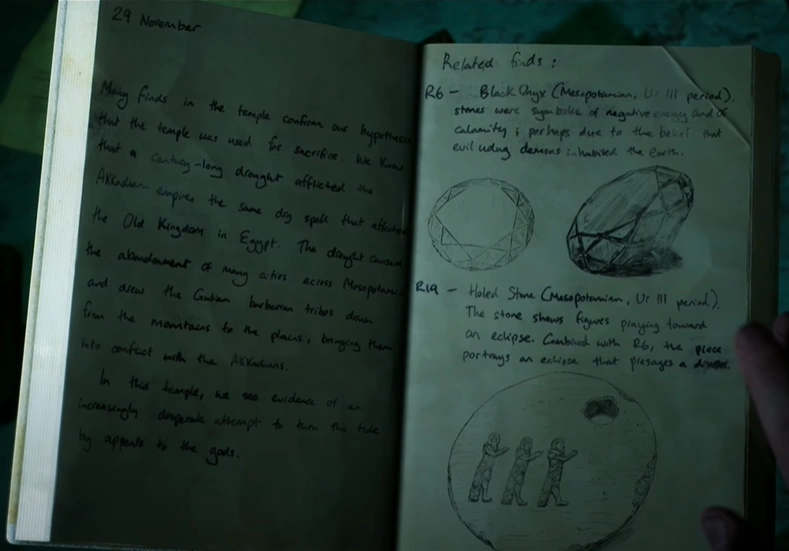 29 November
Many finds in the temple confirm our hypothesis
that the temple was used for sacrifice. We know
that a century-long drought afflicted the
Akkadian empire, the same dry spell that afflicted
the Old Kingdom in Egypt. The drought caused
the abandonment of many cities across Mesopotamia
and drew the Gutian barbarian tribes down
from the mountains to the plains, bringing them
into conflict with the Akkadians.
In this temple, we see evidence of an
increasingly desperate attempt to turn the tide
by appeals to the gods.
Related finds:
R6 - Black Onyx (Mesopotamian, Ur III period).
stones were symbolic of negative energy and of
calamity; perhaps due to the belief that
evil udug demons inhabited the Earth.
R19 - Holed Stone (Mesopotamian, Ur III period).
The stone shows figures praying toward
an eclipse. Combined with R6, the piece
portrays an eclipse that presages a disaster.